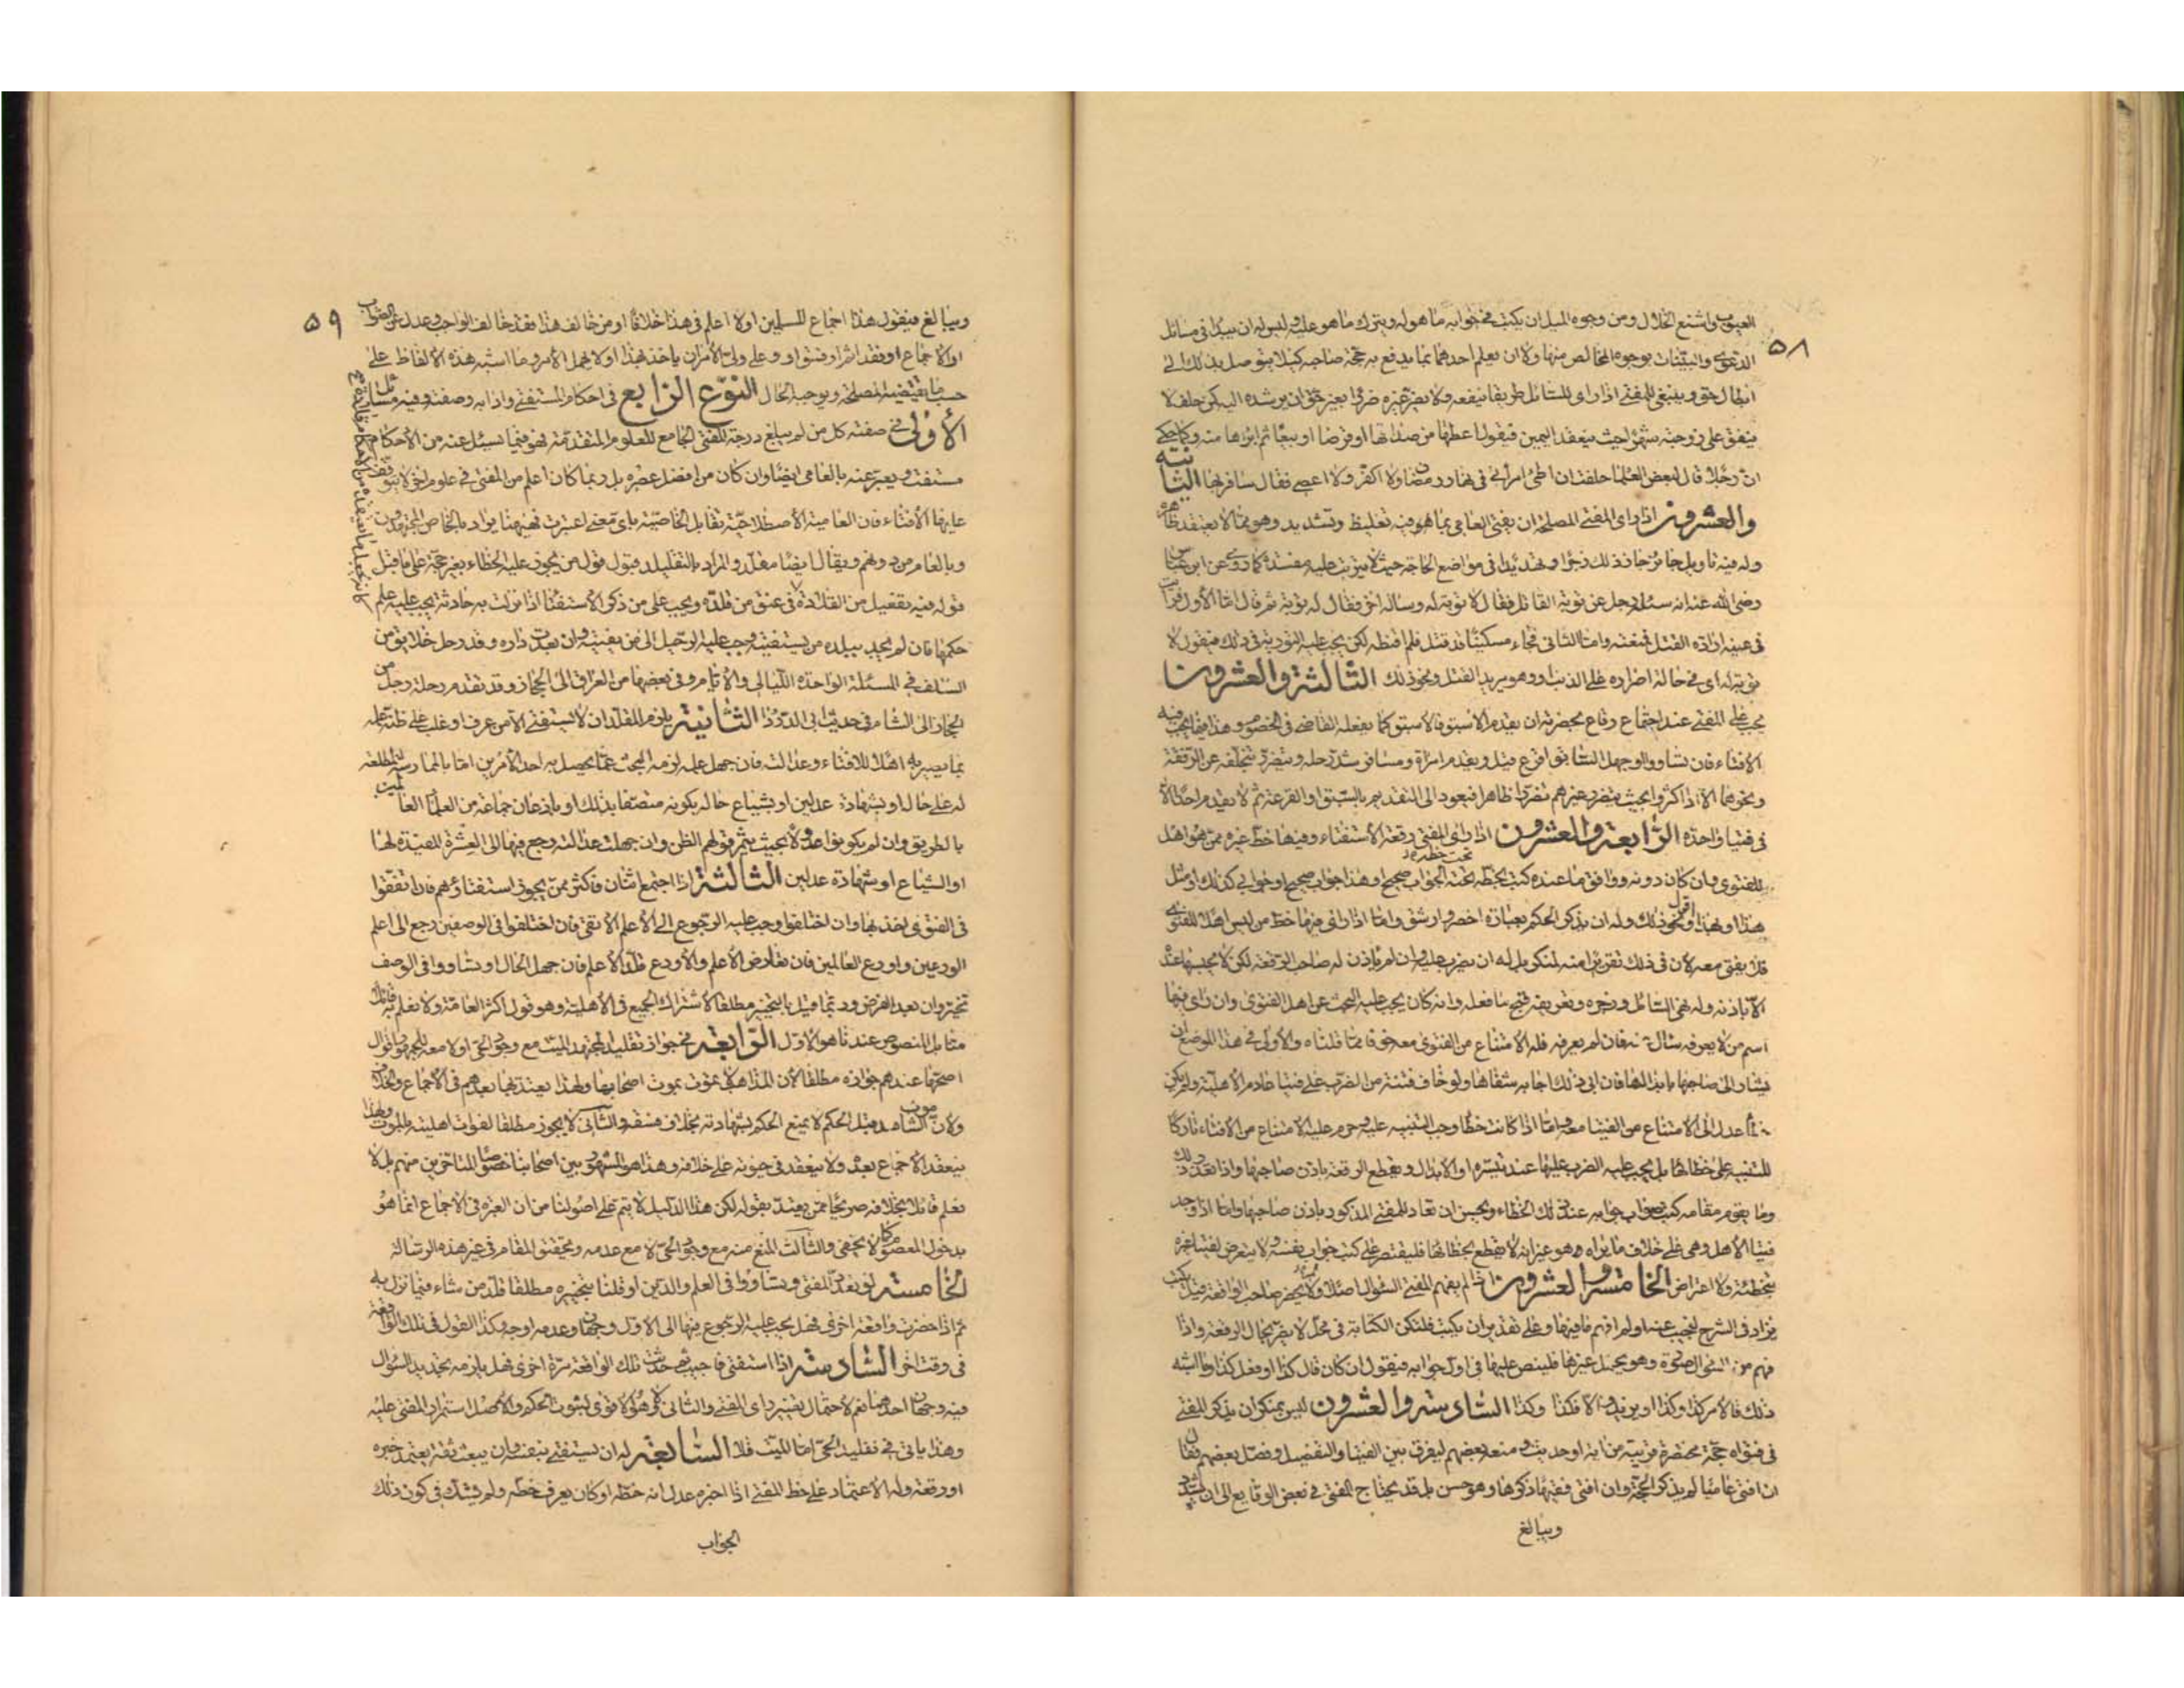 ٥٨
العيوب واشنع الخلال ومن وجوه الميل ان يكتب في جوابه ما هو له ويترك ما هو عليه وليس له ان يبدأ في مسائل
الدعوى والبينات بوجوه المخالص منها ولا ان يعلم احدهما بما يدفع به حجة صاحبه كيلا يتوصل بذلك الى
ابطال حق وينبغي للمفتي اذا راى للسائل طريقا ينفعه ولا يضر غيره ضررا بغير حق ان يرشده اليه كمن حلف لا
ينفق على زوجته شهرا حيث ينعقد اليمين فيقول اعطها من صداقها او قرضا او بيعا ثم ابراها منه وكما حكي
ان رجلا قال لبعض العلما حلفت ان اطئ امراتي في نهار رمضان ولا اكفر ولا اعصي فقال سافر بها الثانية
والعشرون اذا راى المفتي المصلحة ان يفتي العامي بما هو فيه تغليظ وتشديد وهو مما لا يعتقد ظاهره
وله فيه تاويل جاز حافذلك زجرا وتهديدا في مواضع الحاجة حيث لا يترتب عليه مفسدة كما روي عن ابن عباس
رضى الله عنه انه سئله رجل عن توبة القاتل فقال لا توبة له وساله اخر فقال له توبة ثم قال اما الاول فرايت
في عينيه ارادة القتل فمنعته واما الثاني فجاء مسكينا قد قتل فلم اقنطه لكن يجب عليه التورية في ذلك فيقول لا
توبة له اى في حالة اصراره على الذنب او وهو يريد القتل ونحو ذلك الثالثة والعشرون
يجب على المفتي عند اجتماع رقاع بحضرته ان يقدم الاسبق فالاسبق كما يفعله القاضي في الخصوم وهذا فيما يجب فيه
الافتاء فان تساووا او جهل السابق اقرع قيل ويقدم امراة ومسافر شد رحله ويتضرر بتخلفه عن الرفقة
ونحوهما الا اذا كثروا بحيث يتضرر غيرهم تضررا ظاهرا فيعود الى التقديم بالسبق والقرعة ثم لا يقدم احدا الا
في فتيا واحدة الرابعة والعشرون اذا راى المفتي رقعة الاستفتاء وفيها خط غيره ممن هو اهل
للفتوى وان كان دونه ووافق ما عنده كتب تحت خطه الجواب صحيح او هذا جواب صحيح او جوابي كذلك او مثل
هذا او بهذا اقول ونحو ذلك وله ان يذكر الحكم بعبارة اخصر وارشق واما اذا راى فيها خط من ليس اهلا للفتوى
فلا يفتي معه لان في ذلك تقريرا منه لمنكر بل له ان يضرب عليه وان لم ياذن له صاحب الرقعة لكن لا يحبسها عنده
الا باذنه وله نهي السائل وزجره وتعريفه قبح ما فعله وانه كان يجب عليه البحث عن اهل الفتوى وان راى فيها
اسم من لا يعرفه سال عنه فان لم يعرفه فله الامتناع من الفتوى معه خوفا مما قلناه والاولى في هذا الموضع ان
يشار الى صاحبها بابدالها فان ابى ذلك اجابه شفاها ولو خاف فتنة من الضرب على فتيا عادم الاهلية ولم يكن
خطأ عدل الى الامتناع من الفتيا معه واما اذا كانت خطأ وجب التنبيه عليه وحرم عليه الامتناع من الافتاء تاركا
للتنبيه على خطائها بل يجب عليه الضرب عليها عند تيسره او الابدال ويقطع الرقعة باذن صاحبها واذا تعذر ذلك
وما يقوم مقامه كتب صواب جوابه عند ذلك الخطاء ويحسن ان تعاد للمفتي المذكور باذن صاحبها واما اذا وجد
فتيا الاهل وهي على خلاف ما يراه هو غير انه لا يقطع بخطائها فليقتصر على كتب جواب نفسه ولا يتعرض لفتيا غيره
بتخطئة ولا اعتراض الخامسة والعشرون اذا لم يفهم المفتي السؤال اصلا ولم يحضر صاحب الواقعة قيل يكتب
يزاد في الشرح لنجيب عنه او لم افهم ما فيها وعلى تقدير ان يكتب فلتكن الكتابة في محل لا يضر بحال الرقعة واذا
فهم من السؤال صورة وهو يحتمل غيرها فلينص عليها في اول جوابه فيقول ان كان قال كذا او فعل كذا وما اشبه
ذلك فالامر كذا وكذا او يزيد والا فكذا وكذا السادسة والعشرون ليس بمنكر ان يذكر المفتي
في فتواه حجة مختصرة قريبة من اية او حديث ومنعه بعضهم ليفرق بين الفتيا والتصنيف وفصل بعضهم فقال
ان افتى عاميا لم يذكر الحجة وان افتى فقيها ذكرها وهو حسن بل قد يحتاج المفتي في بعض الوقايع الى ان يشدد
ويبالغ
٥٩
ويبالغ فيقول هذا اجماع المسلمين او لا اعلم في هذا خلافا او من خالف هذا فقد خالف الواجب وعدل عن الصواب
او الاجماع او فقد اثم او فسق او وعلى ولي الامر ان ياخذ بهذا او لا يهمل الامر وما اشبه هذه الالفاظ على
حسب ما يقتضيه المصلحة ويوجبه الحال النوع الرابع في احكام المستفتي وادابه وصفته وفيه مسائل
الاولى في صفته كل من لم يبلغ درجة المفتي الجامع للعلوم المتقدمة فهو فيما يسئل عنه من الاحكام
مستفت ويعبر عنه بالعامي ايضا وان كان من افضل عصره بل ربما كان اعلم من المفتي في علوم اخر لا يتوقف
عليها الافتاء فان العامية الاصطلاحية تقابل الخاصية باى معنى اعتبرت فهيهنا يراد بالخاص المجتهدون
وبالعام من دونهم ويقال ايضا مقلد والمراد بالتقليد قبول قول من يجوز عليه الخطاء بغير حجة على ما قبل
قوله فيه تفعيل من القلادة في عنق من قلده ويجب على من ذكر الاستفتا اذا نزلت به حادثة يجب عليه علم
حكمها فان لم يجد ببلده من يستفتيه وجب عليه الرحيل الى من يفتيه وان بعدت داره وقد رحل خلايق من
السلف في المسئلة الواحدة الليالي والايام وفي بعضها من العراق الى الحجاز وقد تقدم رحلة رجل من
الحجاز الى الشام في حديث ابي الدرداء الثانية يلزم المقلد ان لا يستفتي الا من عرف او غلب على ظنه علمه
بما يصير به اهلا للافتاء وعدالته فان جهل علمه لزمه البحث عما يحصل به احد الامرين اما بالممارسة المطلعة
له على حاله او بشهادة عدلين او بشياع حاله بكونه متصفا بذلك او باذعان جماعة من العلما العالمين
بالطريق وان لم يكونوا عدولا بحيث يثمر قولهم الظن وان جهلت عدالته رجع فيها الى العشرة المفيدة لها
او الشياع او شهادة عدلين الثالثة اذا اجتمع اثنان فاكثر ممن يجوز استفتاؤهم فان اتفقوا
في الفتوى اخذ بها وان اختلفوا وجب عليه الرجوع الى الاعلم الاتقى فان اختلفوا في الوصفين رجع الى اعلم
الورعين واورع العالمين فان تعارض الاعلم والاورع قلد الاعلم فان جهل الحال او تساووا في الوصف
تخير وان بعد الفرض وربما قيل بالتخيير مطلقا لاشتراك الجميع في الاهلية وهو قول اكثر العامة ولا نعلم به قائلا
منا بل المنصوص عندنا هو الاول الرابعة في جواز تقليد المجتهد الميت مع وجود الحى او لا معه للجمهور اقوال
اصحها عندهم جوازه مطلقا لان المذاهب لا تموت بموت اصحابها ولهذا يعتد بها بعدهم في الاجماع والخلاف
ولان موت الشاهد قبل الحكم لا يمنع الحكم بشهادته بخلاف فسقه والثاني لا يجوز مطلقا لفوات اهليته بالموت ولهذا
ينعقد الاجماع بعده ولا ينعقد في حيوته على خلافه وهذا هو المشهور بين اصحابنا خصوصا المتاخرين منهم بل لا
نعلم قائلا بخلافه صريحا ممن يعتد بقوله لكن هذا الدليل لا يتم على اصولنا من ان العبرة في الاجماع انما هو
بدخول المعصوم كما لا يخفى والثالث المنع منه مع وجود الحى لا مع عدمه وتحقيق المقام في غير هذه الرسالة
الخامسة لو تعدد المفتي وتساووا في العلم والدين او قلنا بتخييره مطلقا قلد من شاء فيما نزل به
ثم اذا حضرت واقعة اخرى فهل يجب عليه الرجوع فيها الى الاول وجهان وعدمه اوجه وكذا القول في تلك الواقعة
في وقت اخر السادسة اذا استفتى فاجيب ثم حدثت تلك الواقعة مرة اخرى فهل يلزمه تجديد السؤال
فيه وجهان احدهما نعم لاحتمال تغير راى المفتي والثاني لا وهو الاقوى لثبوت الحكم والاصل استمرار المفتي عليه
وهذا ياتي في تقليد الحى اما الميت فلا السابعة له ان يستفتي بنفسه وان يبعث ثقة يعتمد خبره
او رقعة وله الاعتماد على خط المفتي اذا اخبره عدل انه خطه او كان يعرف خطه ولم يشك في كون ذلك
الجواب